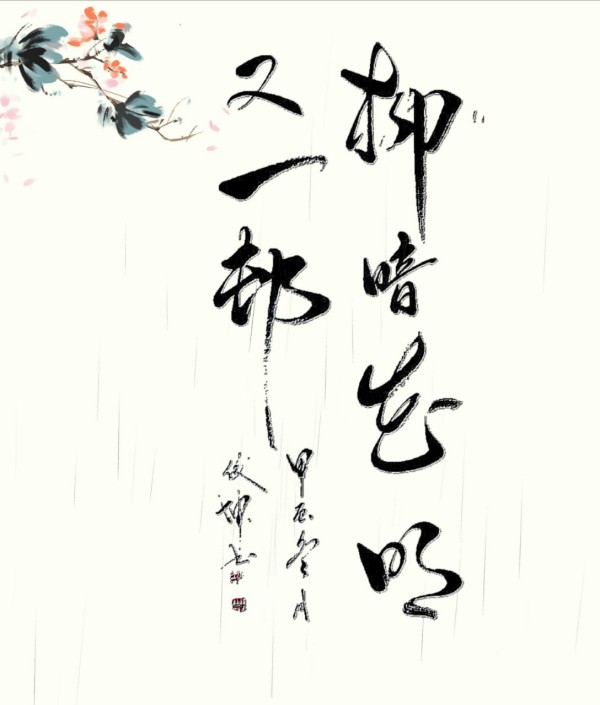 柳暗花明
又一邨
甲辰冬月
俊坤书